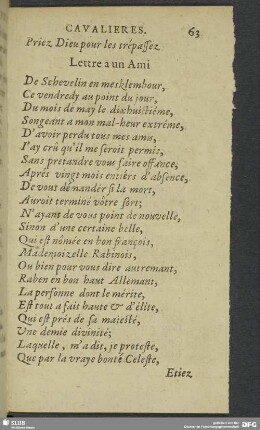 CAVALIERES. 63
Priez Dieu pour les trépassez
Lettre a un Ami
De Schevelin en mesklembour,
Ce vendredy au point du jour,
Du mois de may le dixhuictiéme,
Songeant a mon mal-heur extréme,
D'avoir perdu tous mes amis,
J'ay crû qu'il me seroit permis,
Sans pretandre vous faire offance,
Aprés vingt mois entiérs d'absence,
De vous demander si la mort,
Auroit terminé vôtre sort;
N'ayant de vous point de nouvelle,
Sinon d'une certaine belle,
Qui est nômée en bon françois,
Mademoizelle Rabinois,
Ou bien pour vous dire autremant,
Raben en bon haut Allemant,
La personne dont le mérite,
Est tout a fait haute & d'élite,
Qui est prés de sa majesté,
Vne demie divinité;
Laquelle, m'a dit, je proteste,
Que par la vraye bonté Celeste,
Etiez
SLUB